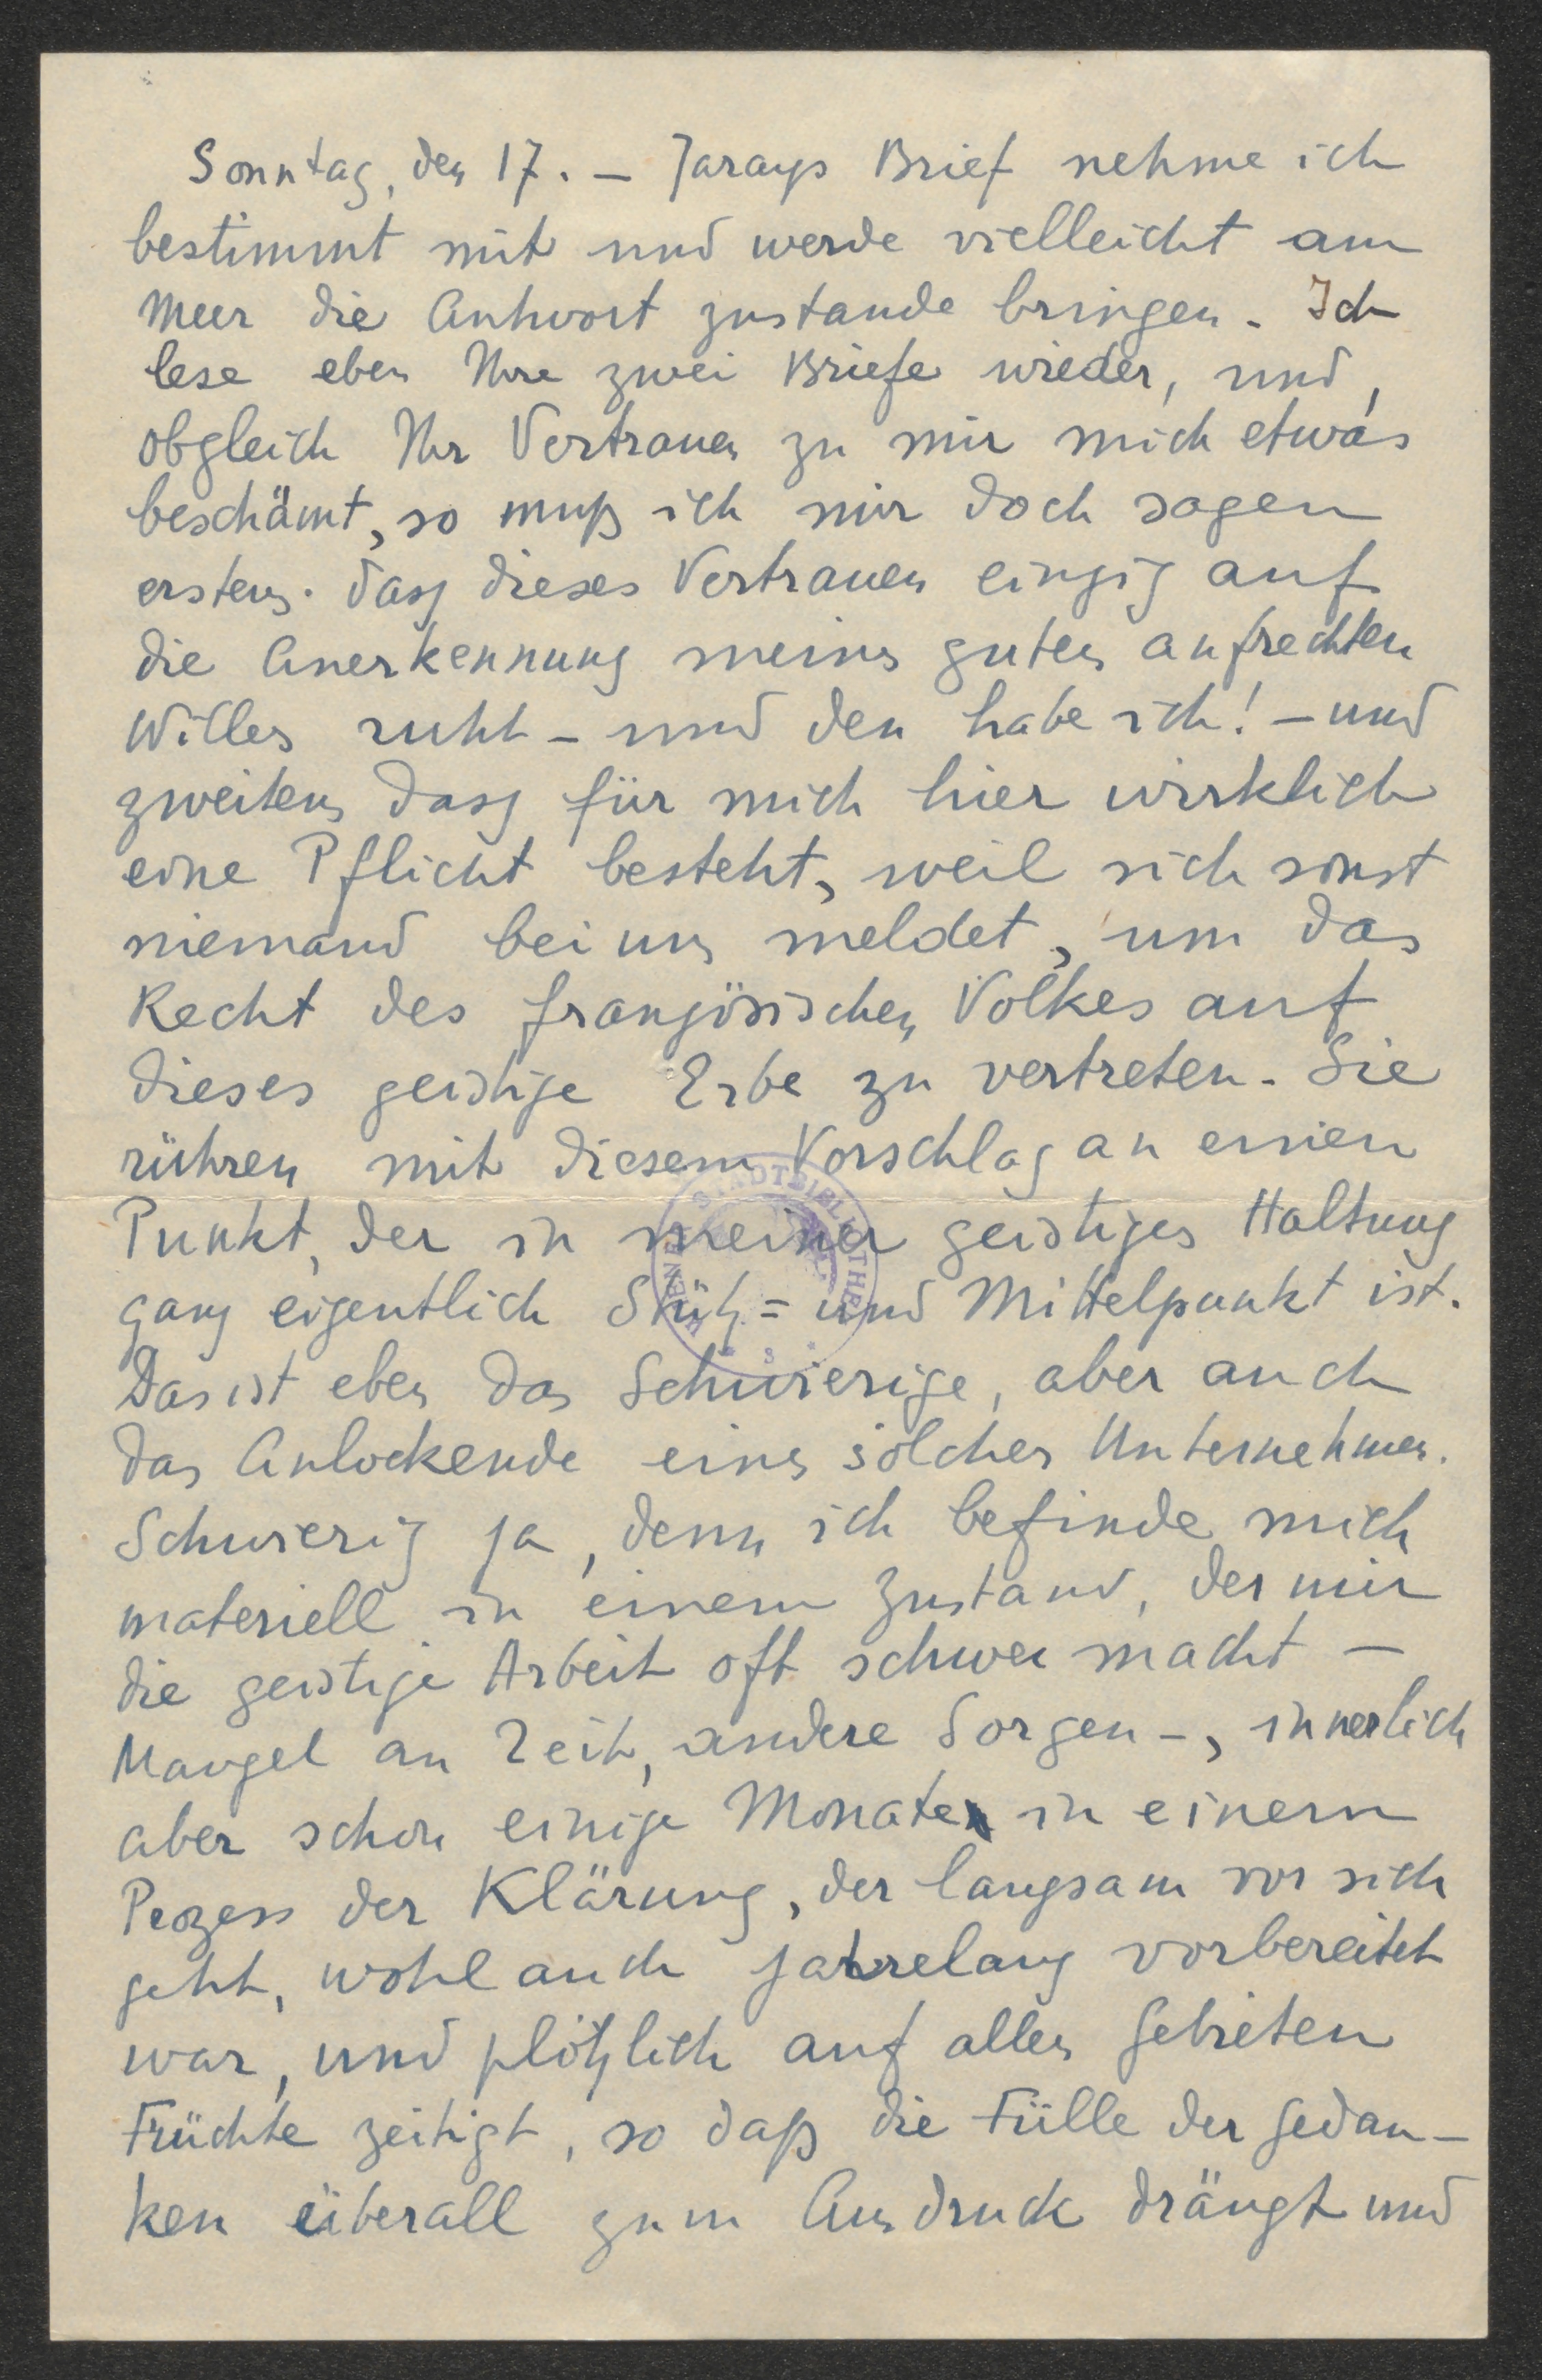 Sonntag, den 17. – Jarays Brief nehme ich
bestimmt mit und werde vielleicht am
Meer die Antwort zustande bringen. Ich
lese eben Ihre zwei Briefe wieder, und,
obgleich Ihr Vertrauen zu mir mich etwas
beschämt, so muß ich mir doch sagen
erstens. dass dieses Vertrauen einzig auf
die Anerkennung meines guten aufrechten
Willes ruht – und den habe ich! – und
zweitens dass für mich hier wirklich
eine Pflicht besteht, weil sich sonst
niemand bei uns meldet, um das
Recht des französischen Volkes auf
dieses geistige Erbe zu vertreten. Sie
rühren mit diesem Vorschlag an einen
Punkt, der in meiner geistiges Haltung
ganz eigentlich Stütz= und Mittelpunkt ist.
Das ist eben das Schwierige, aber auch
das Anlockende eines solches Unternehmen.
Schwierig ja, denn ich befinde mich
materiell in einem Zustand, der mir
die geistige Arbeit oft schwer macht –
Mangel an Zeit, andere Sorgen –, innerlich
aber schon einige Monate in einem
Prozess der Klärung, der langsam vor sich
geht, wohl auch jahrelang vorbereitet
war, und plötzlich auf allen Gebieten
Früchte zeitigt, so daß die Fülle der Gedan–
ken überall zum Ausdruck drängt und